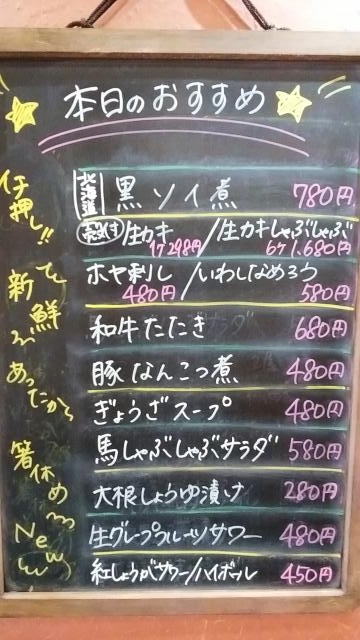 本日のおすすめ
イチ押し!!
北海道 黒ソイ煮 780円
殻付 生カキ 1ケ298円 / 生カキしゃぶしゃぶ 6ケ1,680円
ホヤ刺し 480円 / いわしなめろう 580円
新鮮で
和牛たたき 680円
豚なんこつ煮 480円
あったか
ぎょうざスープ 480円
馬しゃぶしゃぶサラダ 580円
箸休め
大根しょうゆ漬け 280円
New
生グレープフルーツサワー 480円
紅しょうがサワー/ハイボール 450円